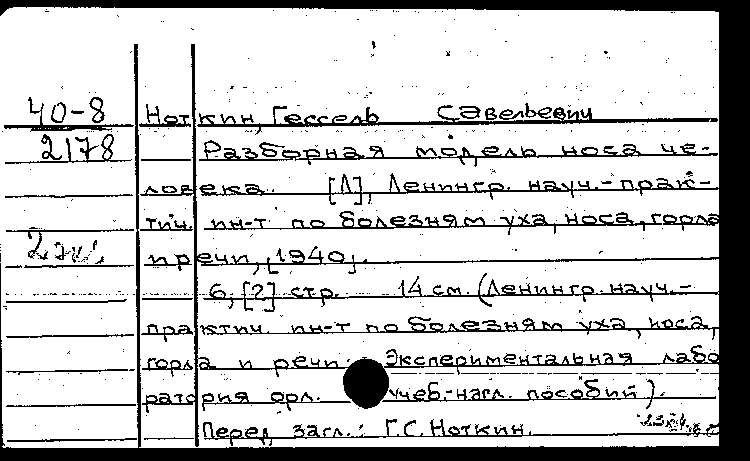 40-8
2178
2 экз.
Ноткин, Гессель Савельевич
Разборная модель носа че-
ловека. [Л], Ленингр. науч.-прак-
тич. ин-т по болезням уха, носа, горла
и речи, [1940].
6, [2] стр. 14 см. (Ленингр. науч.-
практич. ин-т по болезням уха, носа,
горла и речи. Экспериментальная лабо
ратория орл. учеб.-нагл. пособий).
Перед загл.: Г.С. Ноткин.